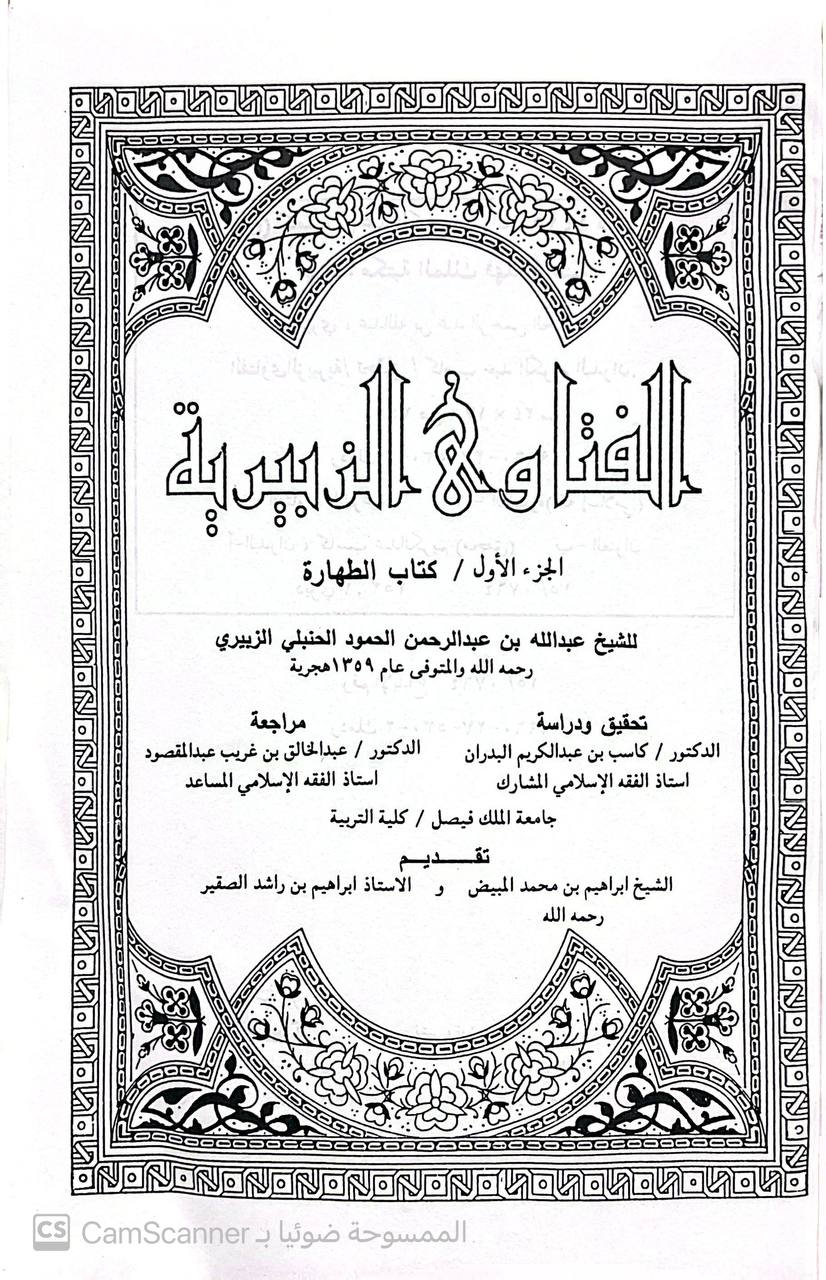 الفتاوى الزبيرية
الجزء الأول / كتاب الطهارة
للشيخ عبدالله بن عبدالرحمن الحمود الحنبلي الزبيري
رحمه الله والمتوفى عام ١٣٥٩هجرية
تحقيق ودراسة
الدكتور / كاسب بن عبدالكريم البدران
استاذ الفقه الإسلامي المشارك
مراجعة
الدكتور / عبدالخالق بن غريب عبدالمقصود
استاذ الفقه الإسلامي المساعد
جامعة الملك فيصل / كلية التربية
تقـــديـــم
الشيخ ابراهيم بن محمد المبيض و الاستاذ ابراهيم بن راشد الصقير
رحمه الله
CS CamScanner الممسوحة ضوئيا بـ